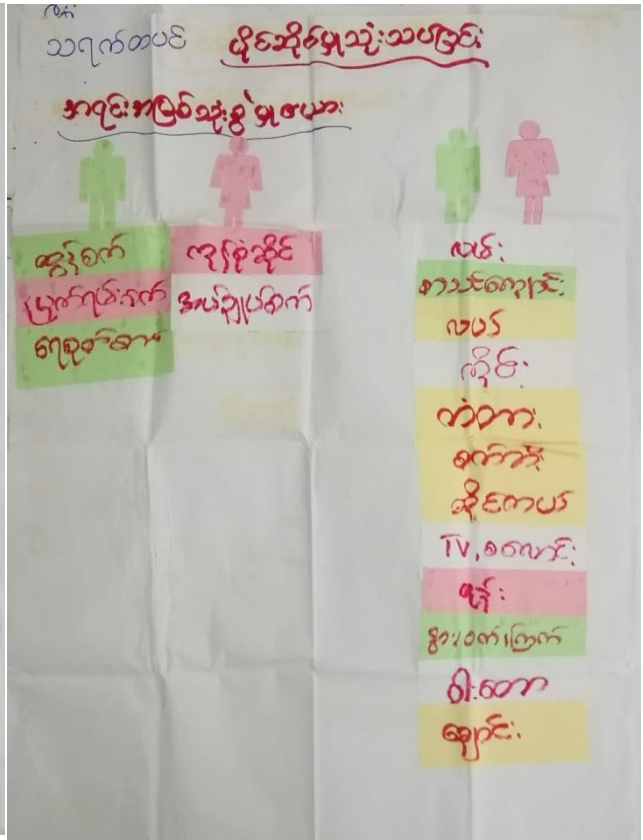 သရက်တပင် ပိုင်ဆိုင်မှုသုံးသပ်ခြင်း
အရင်းအမြစ်သုံးစွဲမှုဇယား
ထွန်စက်
မြက်ရမ်းစက်
ရေစုတ်စက်
ကုန်စုံဆိုင်
အပ်ချုပ်စက်
လမ်း
စာသင်ကျောင်း
လယ်
ကိုင်း
တံတား
စက်ဘီး
ဆိုင်ကယ်
TV, စလောင်း
ဖုန်း
နွား၊ဝက်၊ကြက်
ဝါးတော
ချောင်း